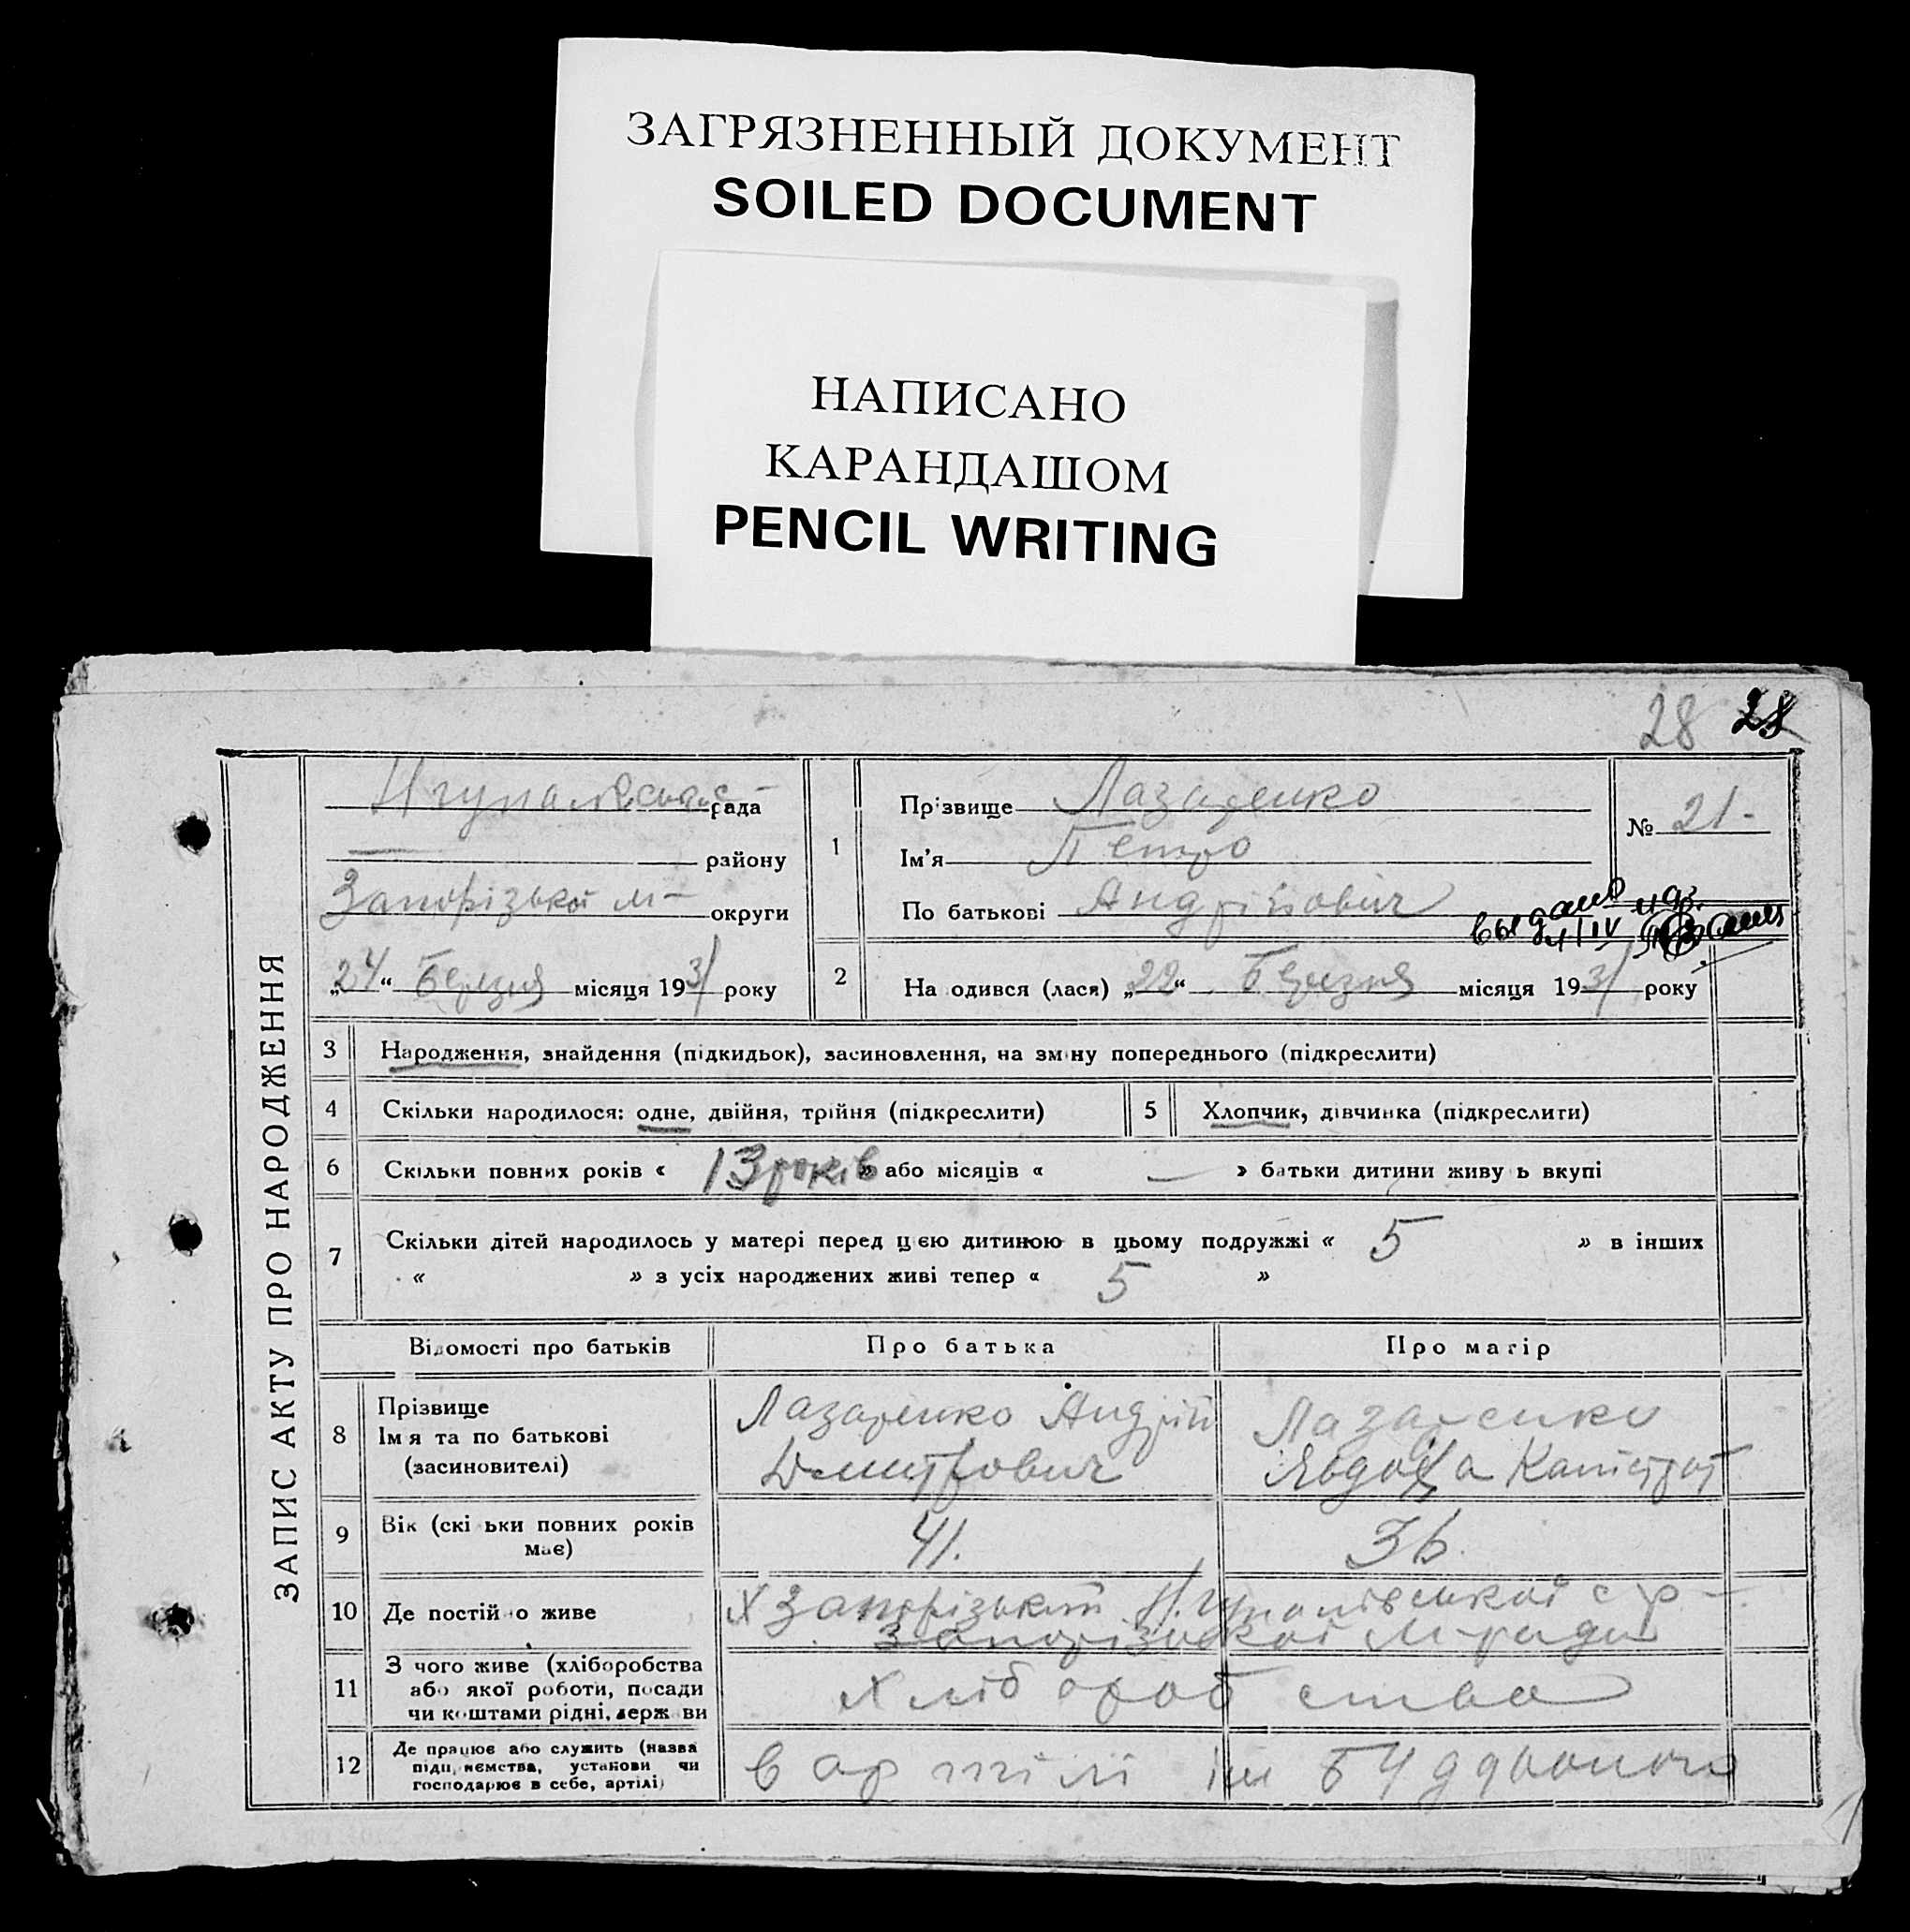 ЗАГРЯЗНЕННЫЙ ДОКУМЕНТ
SOILED DOCUMENT
НАПИСАНО
КАРАНДАШОМ
PENCIL WRITING
28 28
ЗАПИС АКТУ ПРО НАРОДЖЕННЯ
рада
району
Запорізької м- округи
„24“ Березня місяця 1931 року
1 Прізвище Лазаренко
Ім'я Петро
По батькові Андрійович
№ 21-
выдано
4/IV
2 На одився (лася) „22“ Березня місяця 1931 року
3 Народження, знайдення (підкидьок), засиновлення, на зміну попереднього (підкреслити)
4 Скільки народилося: одне, двійня, трійня (підкреслити) 5 Хлопчик, дівчинка (підкреслити)
6 Скільки повних років « 13 років » або місяців « — » батьки дитини живу ь вкупі
7 Скільки дітей народилось у матері перед цією дитиною в цьому подружжі « 5 » в інших
« » з усіх народжених живі тепер « 5 »
Відомості про батьків Про батька Про матір
8 Прізвище
Ім я та по батькові
(засиновителі)
Лазаренко Андрій
Дмитрович
Лазаренко
Явдоха
9 Вік (скі ьки повних років
має)
41. 36.
10 Де постійно живе
х Запорізький
Запорізької м-ради
11 З чого живе (хліборобства
або якої роботи, посади
чи коштами рідні, держ ви
Хліборобства
12 Де працює або служить (назва
підприємства, установи чи
господарює в себе, артілі)
в артілі ім